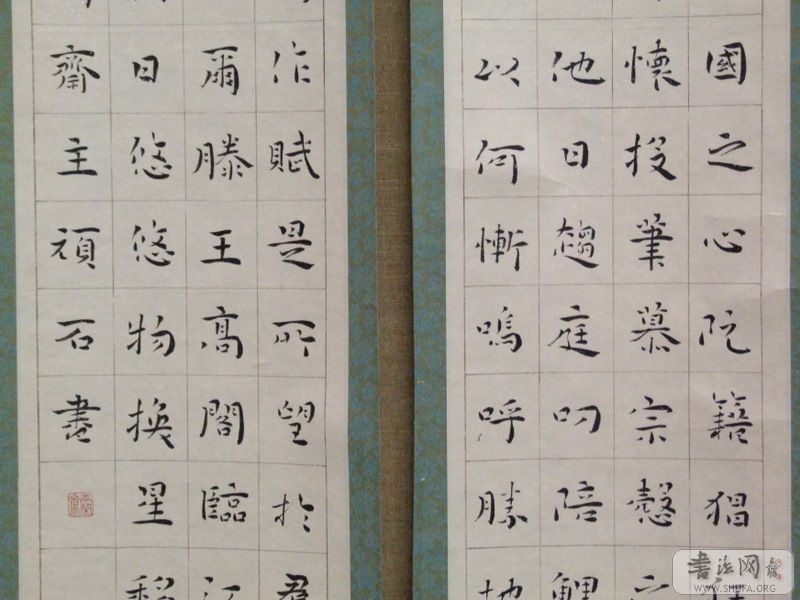 國之心阮籍猖
懷投筆慕宗愨之
他日趨庭叨陪鯉
以何慚嗚呼勝地
作賦是所望於羣
爾滕王高閣臨江
日悠悠物換星移
齋主頑石書
書法网
WWW.SHUFA.ORG